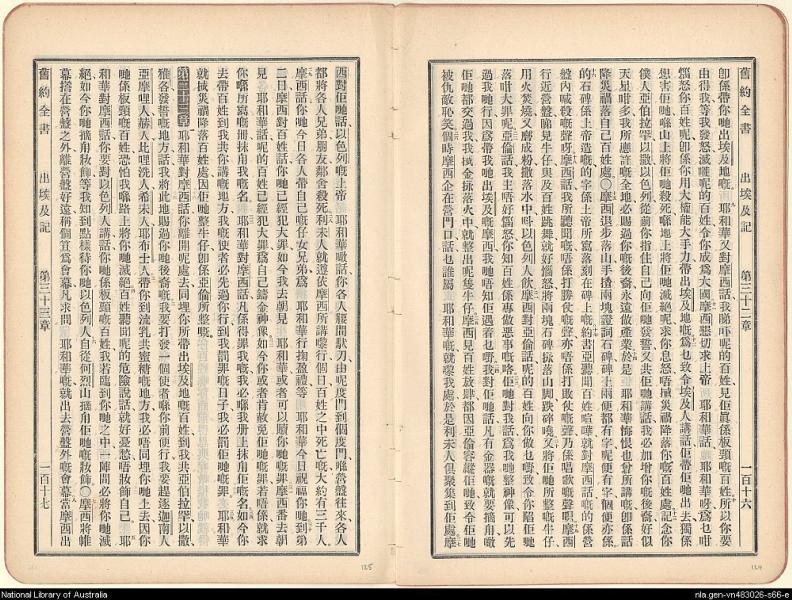 舊約全書 出埃及記 第三十二章 一百十六
卽係帶你哋出埃及地嘅 耶和華又對摩西話我睇吓呢的百姓見佢眞係板頸嘅百姓所以你要
由得我等我發怒滅嗮呢的百姓令你成爲大國摩西懇切求上帝 耶和華話 耶和華呀爲乜咁
惱怒你百姓呢卽係你用大權能大手力帶出埃及地嘅爲乜致令埃及人講話佢帶佢哋出去獨係
想害佢哋喺山上將佢哋殺死喺地上將佢哋滅絕呢求你息怒唔好搣災禍降落你嘅百姓處記念你
僕人亞伯拉罕以撒以色列從前你指住自己向佢哋發誓又共佢哋講話我必加增你嘅後裔好似
天星咁多我所應許嘅全地必賜過你嘅後裔永遠做產業於是 耶和華悔恨也曾所講嘅卽係話
降災禍落自己百姓處〇摩西退步落山手揸兩塊證詞石碑碑上兩便都有字呢便有字個便亦係
的石碑係上帝造嘅的字係上帝所寫落刻在碑上嘅約書亞聽聞百姓喧嘩就對摩西話嘅的係營
盤內喊殺嘅聲呀摩西話我所聽聞嘅唔係打勝仗嘅聲亦唔係打敗仗嘅聲乃係唱歌嘅聲啫摩西
行近營盤睇見牛仔與及百姓跳舞就好惱怒將兩塊石碑掟落山脚跌碎嘵又將佢哋所整嘅牛仔
用火焚燒又磨成粉撒落水中俾以色列人飲摩西對亞倫話呢的百姓向你做乜嘢致令你陷佢哋
落咁大罪呢亞倫話我主唔好惱怒你知百姓係專做惡事嘅咯佢哋對我話爲我哋整神像可以先
過我哋行因爲帶我哋出埃及嘅摩西我哋唔知佢遇着乜嘢我對佢哋話凡有金器嘅就要摘甪嚟
佢哋都交過我我掟金落火中就整出呢隻牛仔摩西見百姓放肆都因亞倫容縱佢哋致令佢哋
被仇敵恥笑個時摩西企在營門口話乜誰屬 耶和華嘅就嚟我處於是利未人俱聚集到佢處摩
124
舊約全書 出埃及記 第三十三章 一百十七
西對佢哋話以色列嘅上帝 耶和華噉話你各人腰間馱刀由呢度門到個度門喺營盤往來各人
都將各人兄弟朋友鄰舍殺死利未人就遵依摩西所講嚟行個日百姓之中死亡嘅大約有三千人
摩西話你哋今日各人帶自己嘅仔女兄弟爲 耶和華行掬盈禮等 耶和華今日祝福你哋到第
二日摩西對百姓話你哋已經犯大罪如今我去朝見 耶和華或者可以贖你哋嘅罪摩西番去朝
見 耶和華話呢的百姓已經犯大罪爲自己鑄金神像如今你或者肯赦免佢哋嘅罪若唔係就求
你喺所寫嘅冊抹甪我嘅名 耶和華對摩西話凡係得罪我嘅我必喺我册上抹甪佢嘅名如今你
去帶百姓到我共你講嘅地方我嘅使者必先過你行到我罰罪嘅日子我必罰佢哋嘅罪 耶和華
就掟災禍降落百姓處因佢哋整牛仔卽係亞倫所整嘅
第三十三章 耶和華對摩西話你離開呢處去同埋你所帶出埃及地嘅百姓到我共亞伯拉罕以撒
雅各發誓嘅地方話我將此地賜過你哋後裔嘅我要打發一個使者喺你前便行我要趕逐迦南人
亞摩哩人赫人比哩洗人希未人耶布士人帶你到流乳共蜜糖嘅地方我必唔同埋你哋上去因你
哋係板頸嘅百姓恐怕我喺路上將你哋滅絕百姓聽聞呢的危險說話就好憂愁唔妝飾自己 耶
和華對摩西話你要對以色列人講話你哋係板頸嘅百姓我若臨到你哋之中一陣間必將你哋滅
絕如今你哋搣甪妝飾等我知到點樣待你哋以色列人自從何烈山搣甪佢哋嘅妝飾〇摩西將帷
幕搭在營盤之外離營盤好遠稱個笪爲會幕凡求問 耶和華嘅就出去營盤外嘅會幕當摩西出
125
National Library of Australia
nla.gen-vn483026-s66-e